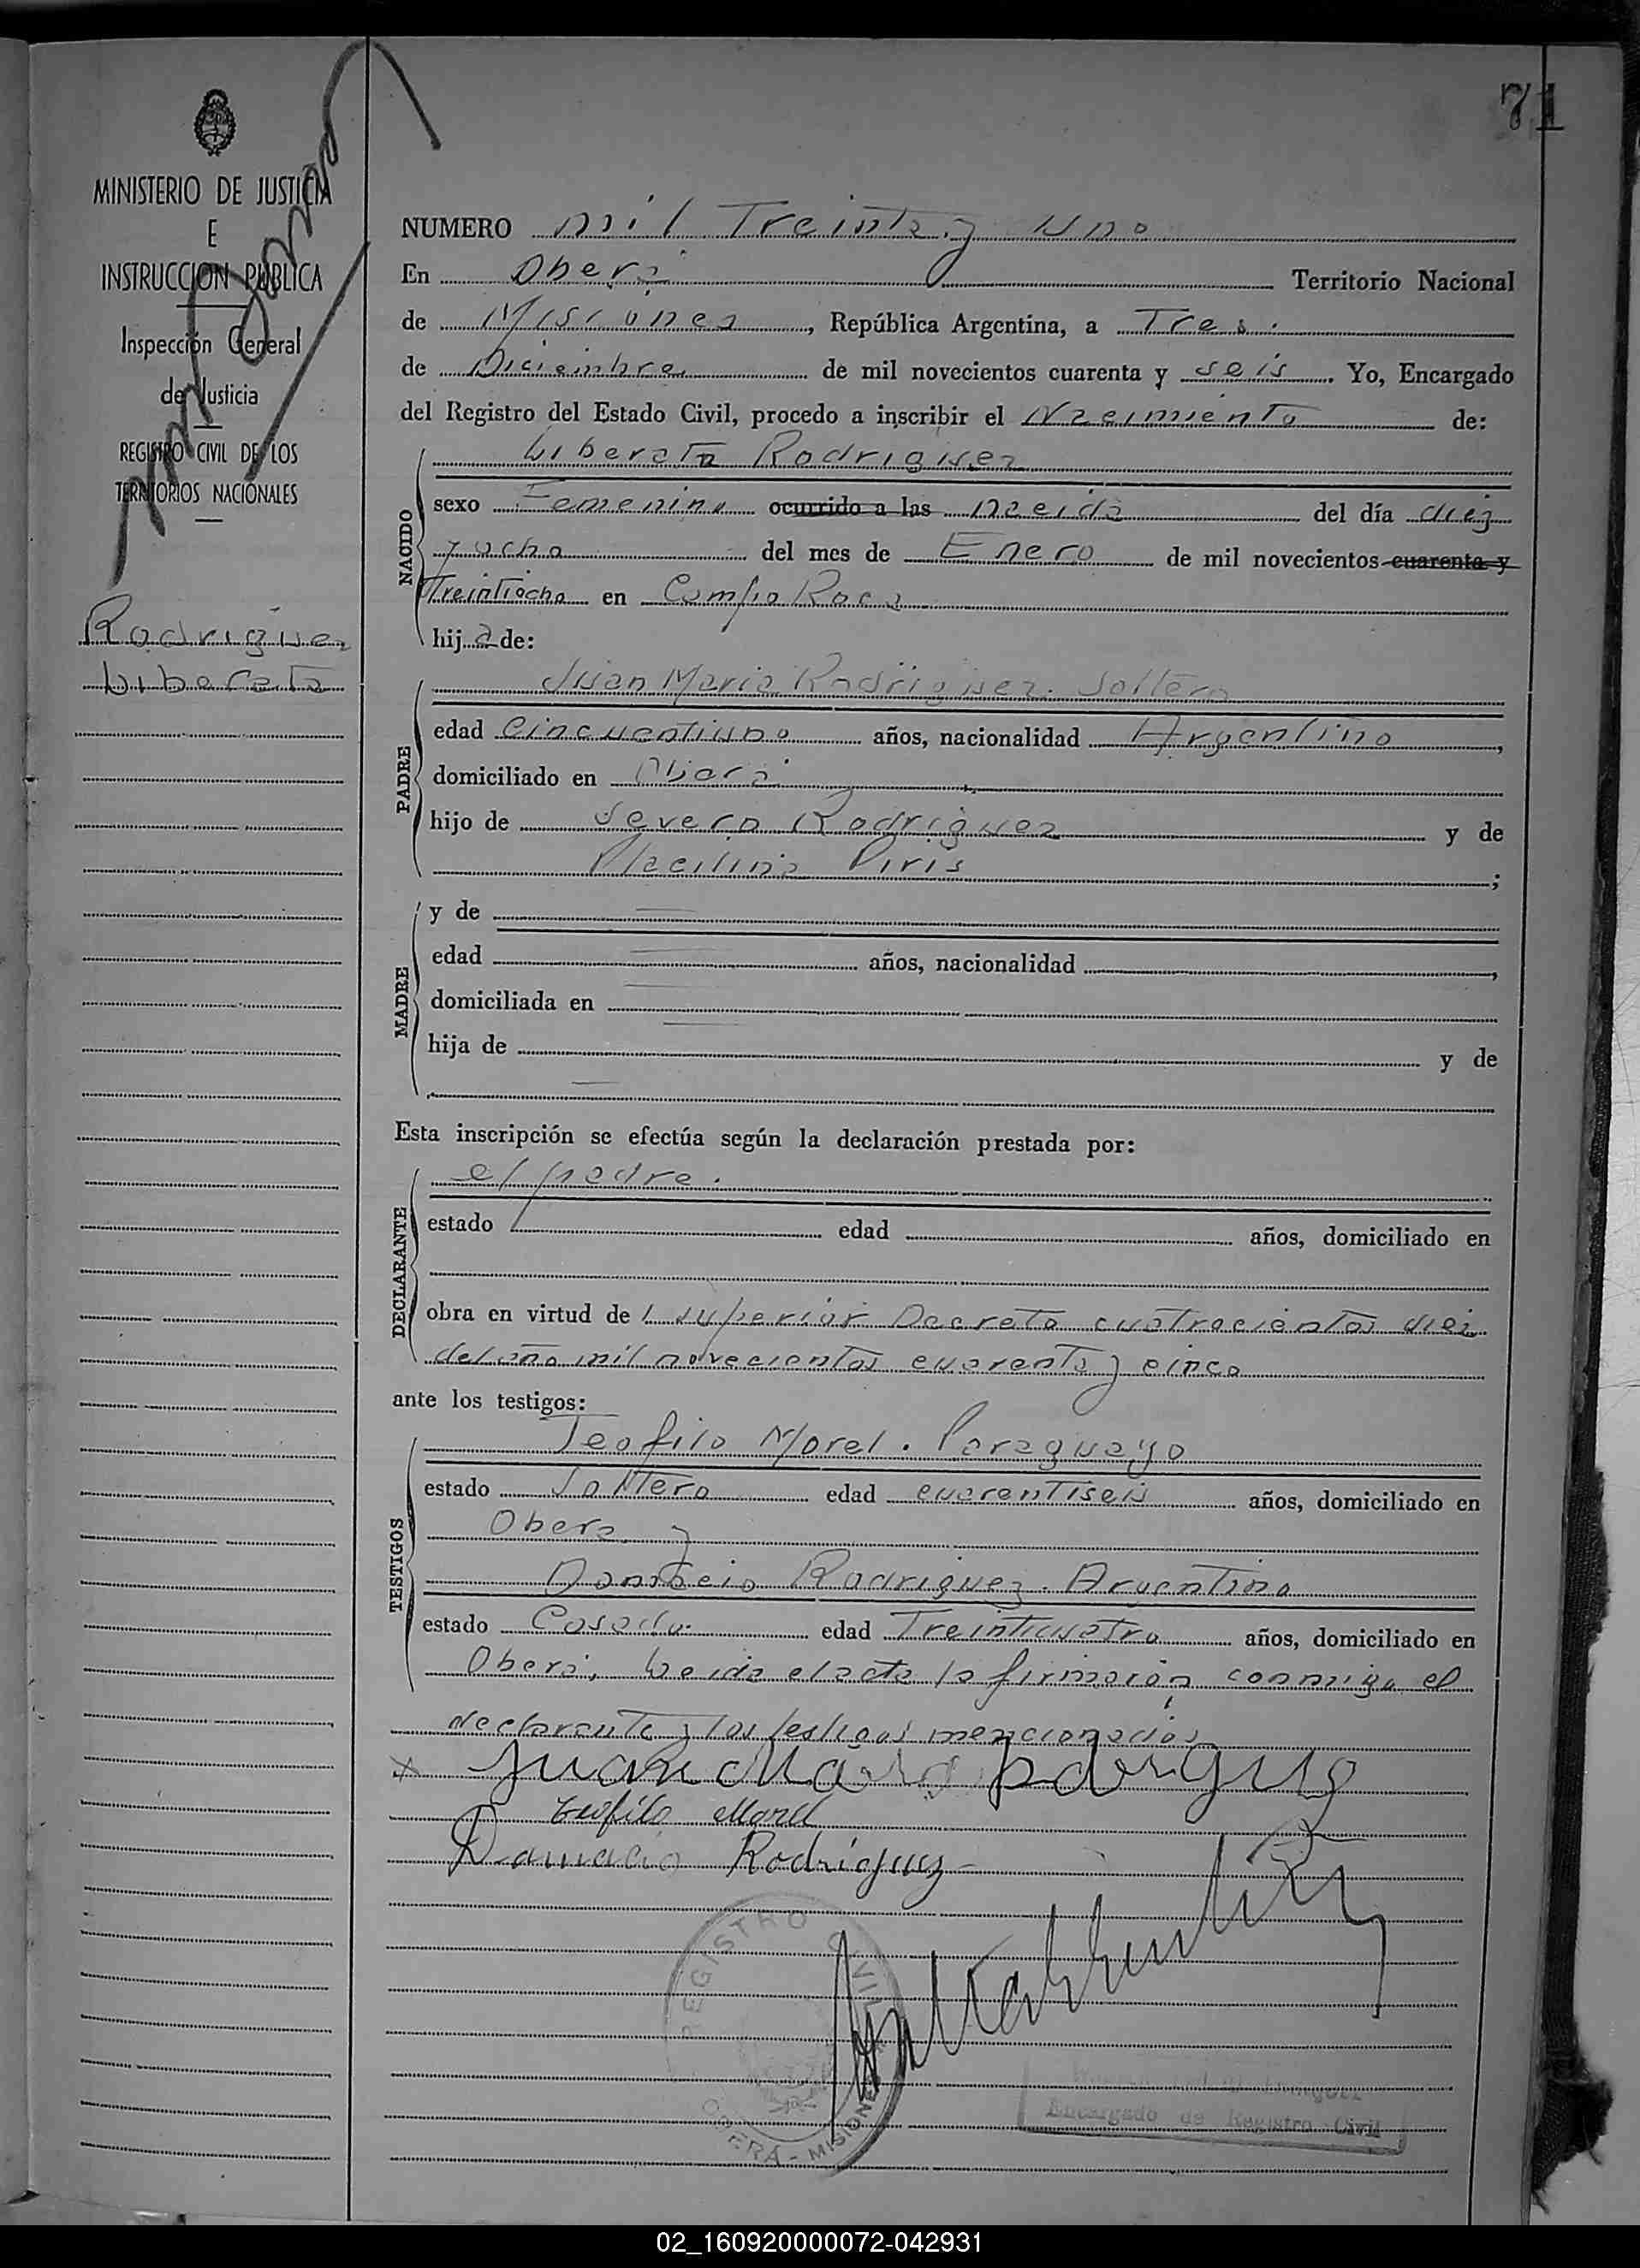 71
MINISTERIO DE JUSTICIA
E
INSTRUCCION PUBLICA
Inspección General
de Justicia
REGISTRO CIVIL DE LOS
TERRITORIOS NACIONALES
Rodriguez
Liberata
NUMERO mil Treinta y uno
En Oberá Territorio Nacional
de Misiones, República Argentina, a Tres.
de Diciembre de mil novecientos cuarenta y seis. Yo, Encargado
del Registro del Estado Civil, procedo a inscribir el Nacimiento de:
NACIDO
Liberata Rodriguez
sexo Femenino ocurrido a las nacida del día diez
y ocho del mes de Enero de mil novecientos cuarenta y
Treintiocho en Campo Roca
hija de:
PADRE
Juan Maria Rodriguez. Soltero
edad Cincuentiuno años, nacionalidad Argentino,
domiciliado en Oberá
hijo de Severo Rodriguez y de
Placilina Piris;
MADRE
y de
edad años, nacionalidad ,
domiciliada en
hija de y de
Esta inscripción se efectúa según la declaración prestada por:
DECLARANTE
el padre.
estado edad años, domiciliado en
obra en virtud de Superior Decreto cuatrocientos diez
del año mil novecientos cuarenta y cinco
ante los testigos:
TESTIGOS
Teofilo Morel. Paraguayo
estado Soltero edad cuarentiseis años, domiciliado en
Obera y
Damacio Rodriguez. Argentino
estado Casado. edad Treinticuatro años, domiciliado en
Oberá, Leida el acta la firmaron conmigo el
declarante y los testigos mencionados
x Juan Maria Rodriguez
teofilo Morel
Damacio Rodríguez
REGISTRO CIVIL
OBERA - MISIONES
Encargado de Registro Civil
02_160920000072-042931